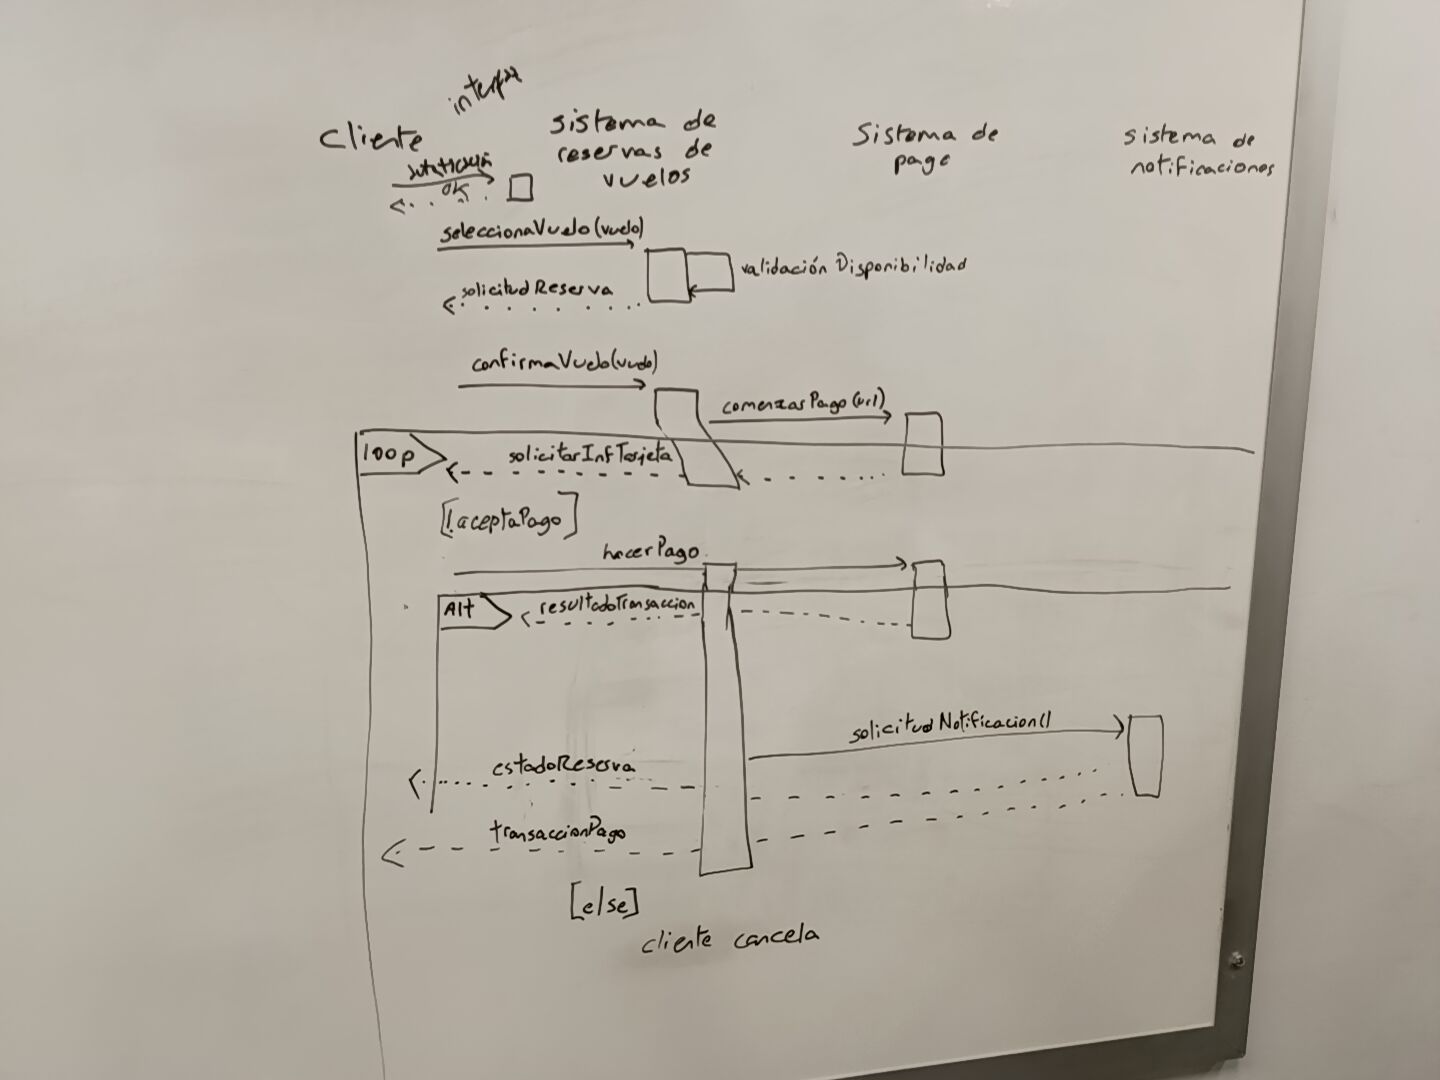 interfaz
cliente
sistema de
reservas de
vuelos
sistema de
pago
sistema de
notificaciones
OK
seleccionaVuelo(vuelo)
validación Disponibilidad
solicitudReserva
confirmaVuelo(vuelo)
comenzarPago(url)
loop
solicitarInfTarjeta
[!aceptaPago]
hacerPago
Alt
resultadoTransaccion
solicitudNotificacion()
estadoReserva
transaccionPago
[else]
cliente cancela